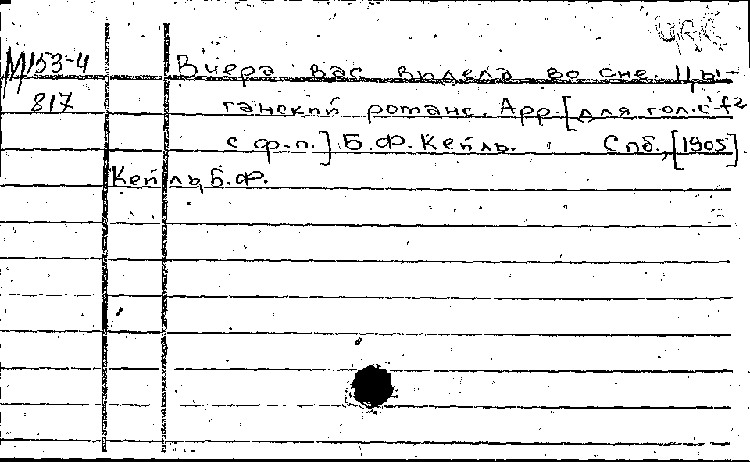 М153-4
817
Вчера вас видела во сне. Цы-
ганский романс. Арр. [для гол. c'-f²
с ф.-п.] Б.Ф. Кейль. Спб., [1905]
Кейль, Б.Ф.